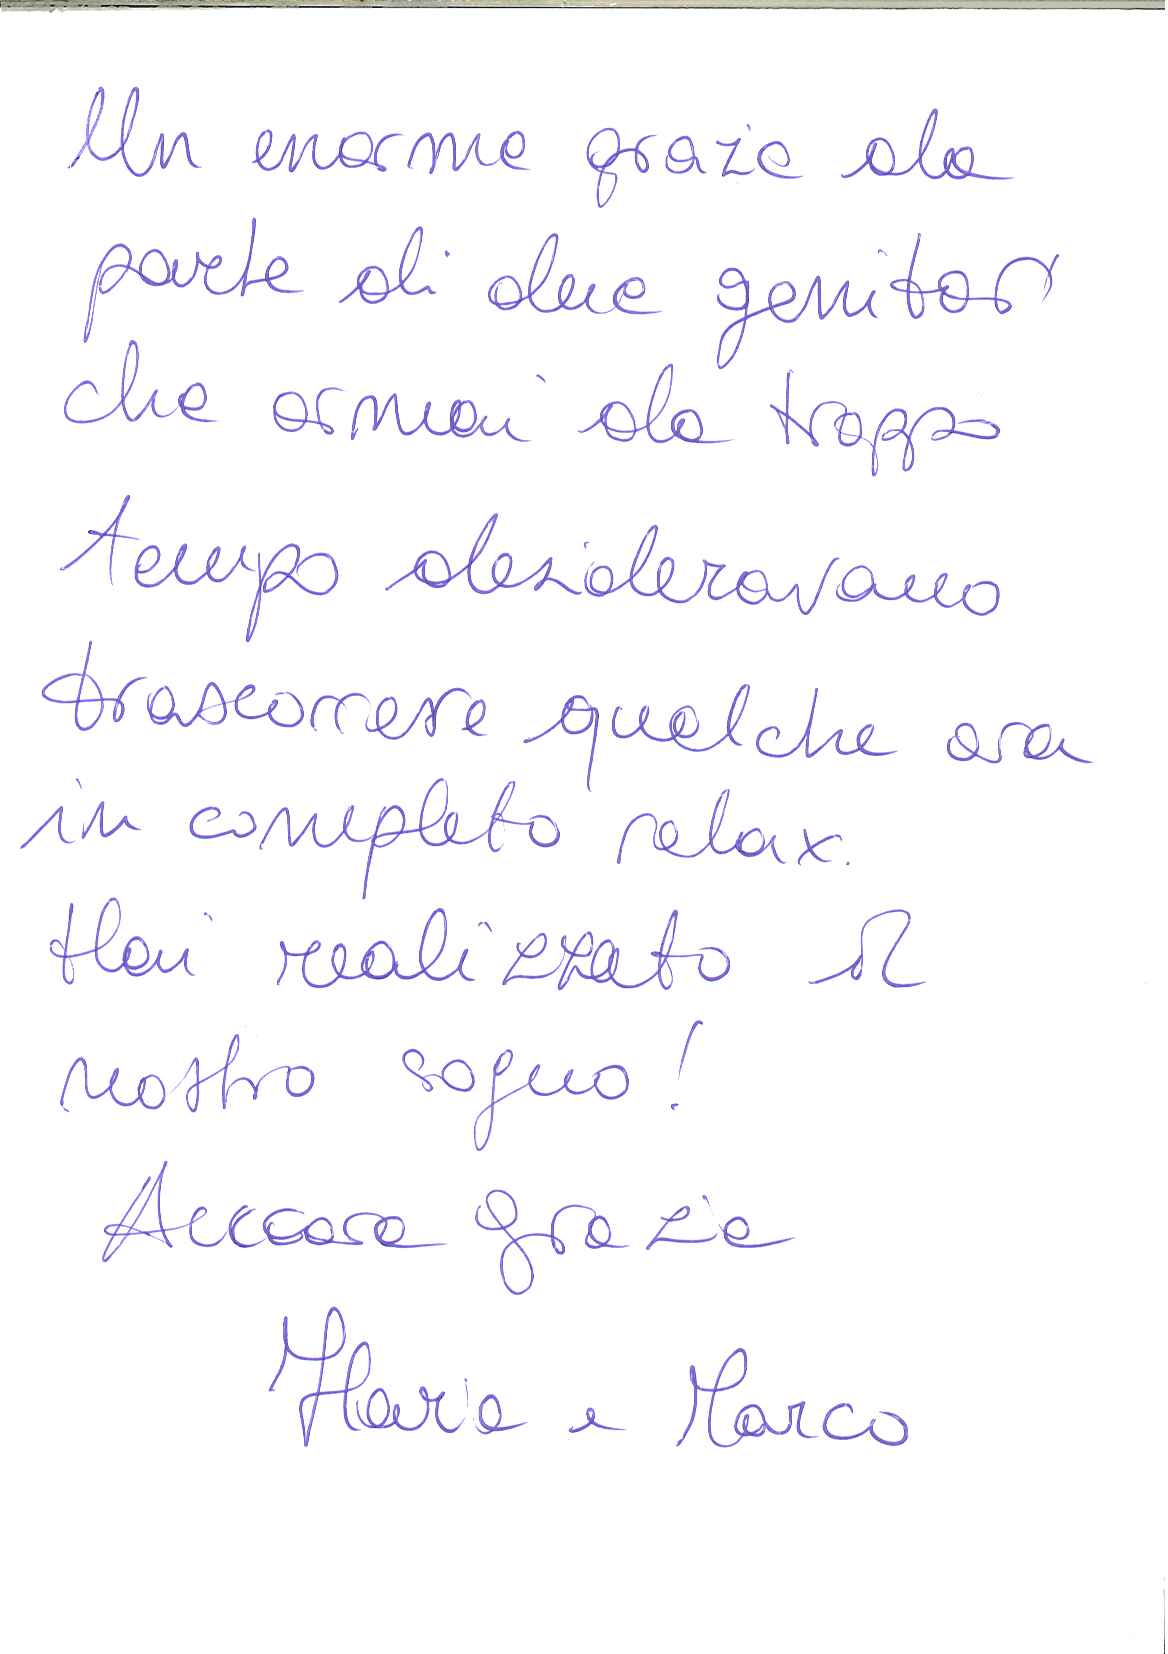 Un enorme grazie da
parte di due genitori
che ormai da troppo
tempo desideravano
trascorrere qualche ora
in completo relax.
Hai realizzato il
nostro sogno!
Ancora grazie
Ilaria e Marco